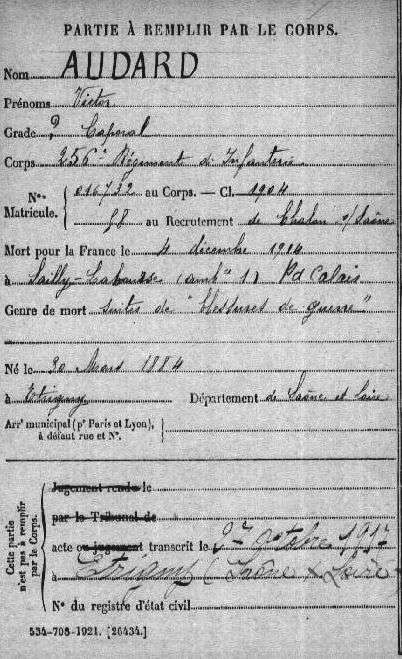 PARTIE À REMPLIR PAR LE CORPS.
Nom AUDARD
Prénoms Victor
Grade Caporal
Corps 256e Régiment d'Infanterie
Nos Matricule. { 016732 au Corps. — Cl. 1904
au Recrutement de Chalon s/Saône
Mort pour la France le 4 décembre 1914
à Sailly-Labourse (ambce 1) Pd Calais
Genre de mort suites de "blessures de guerre"
Né le 30 Mars 1884
à Etrigny Département de Saône et Loire
Arrt municipal (pr Paris et Lyon), à défaut rue et N°.
Cette partie n'est pas à remplir par le Corps.
Jugement rendu le
par le Tribunal de
acte ou jugement transcrit le octobre 1917
à Etrigny (Saône & Loire)
N° du registre d'état civil
534-708-1921. [26434.]